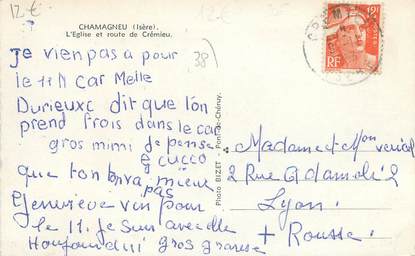 12€
12€
38)
CHAMAGNEU (Isère).
L'Eglise et route de Crémieu.
12F
RF
je vien pas a pour
le 11 N car Melle
Durieuxc dit que l'on
prend frois dans le car
gros mimi je pense
g cucco
que ton bra mieux
pas
Geneviève vin pour
le 11. je sui avec elle
gros
Photo BIZET - Pont-de-Chéruy.
Madame et Mon
2 Rue G adam
Lyon
+ Rousse